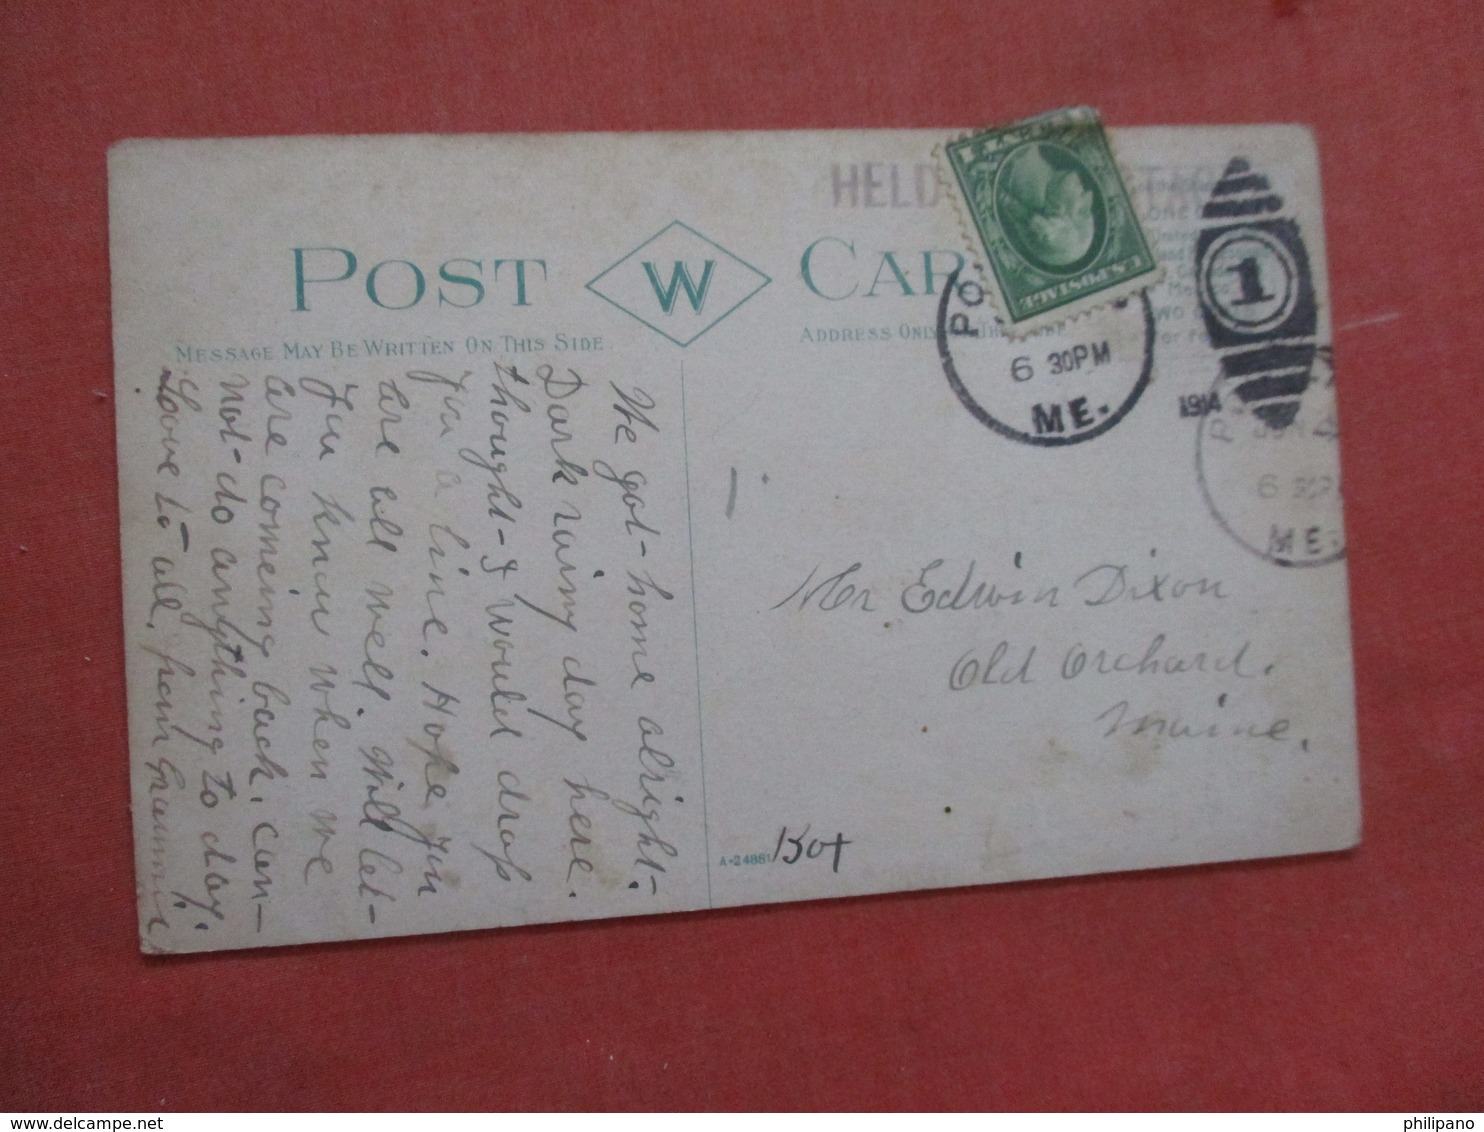 HELD
POST W CAR
MESSAGE MAY BE WRITTEN ON THIS SIDE
ADDRESS ONLY
U.S. POSTAGE
PO
6 30PM
ME.
1914
1
6 30P
ME.
We got-home alright-.
Dark rainy day here.
thought-I would drop
You a line. Hope You
are all well. Will let-
You know when we
are comeing back. Can-
not-do anything to day.
Love to all. from Grammie
1
Mr Edwin Dixon
Old Orchard.
Maine.
A-24881
Box
philipano
delcampe.net